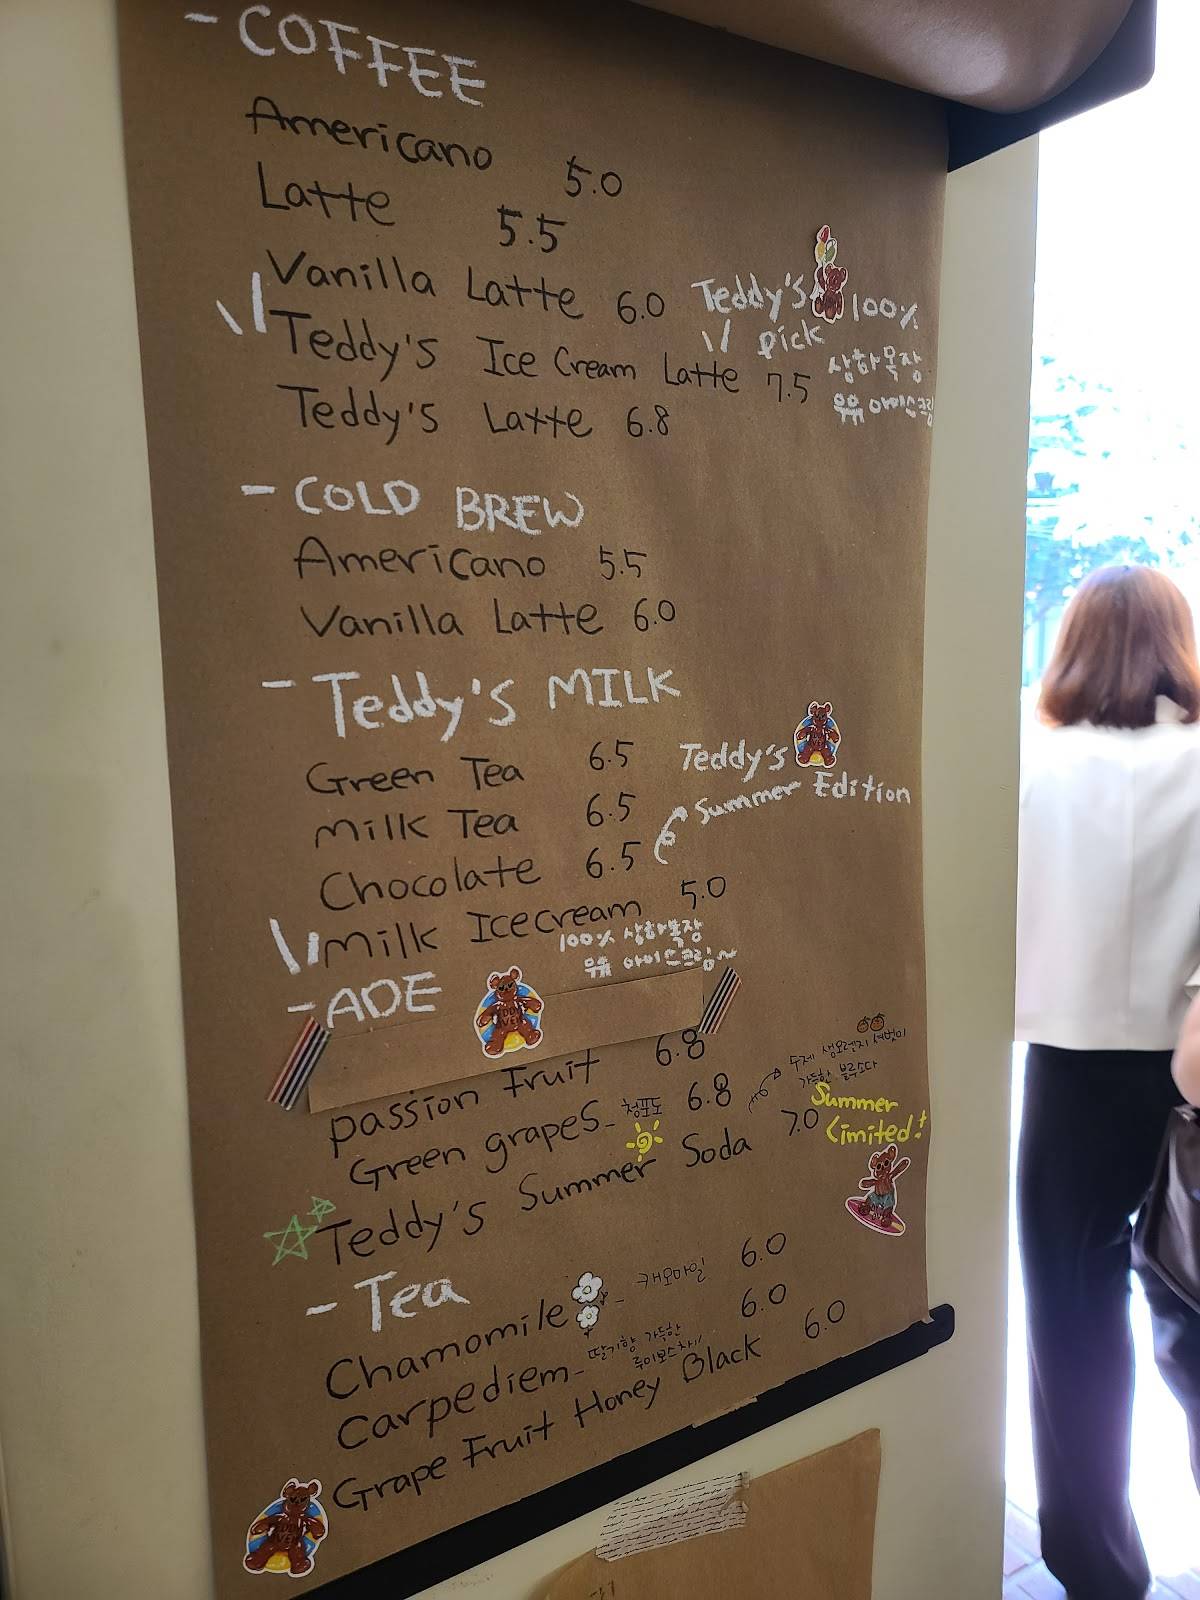 - COFFEE
Americano 5.0
Latte 5.5
Vanilla Latte 6.0
Teddy's Ice Cream Latte 7.5
Teddy's 100%
pick
상하목장
유유 아이스크림
Teddy's Latte 6.8
- COLD BREW
Americano 5.5
Vanilla Latte 6.0
- Teddy's MILK
Green Tea 6.5
Milk Tea 6.5
Chocolate 6.5
Teddy's
Summer Edition
Milk Icecream 5.0
100% 상하목장
유유 아이스크림~
- ADE
passion Fruit 6.8
Green grapes - 청포도 6.8
Teddy's Summer Soda 7.0
수제 생오렌지 셔벗이
가득한 블루소다
Summer
Limited!
- Tea
Chamomile - 캐모마일 6.0
Carpediem - 딸기향 가득한 6.0
루이보스차!!
Grape Fruit Honey Black 6.0